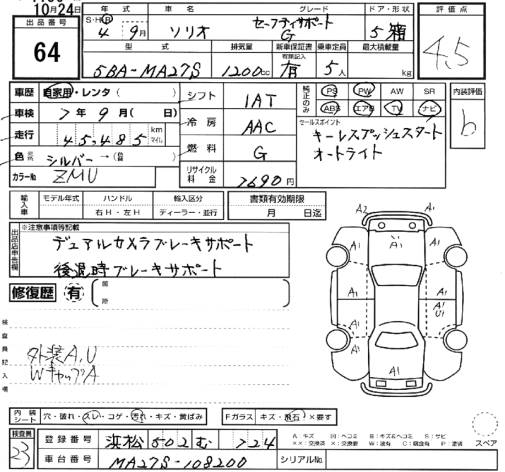 10月24日
出品番号 64
年式 S・H・R 4年 9月
車名 ソリオ
グレード セーフティサポート G
ドア・形状 5 箱
評価点 4.5
型式 5BA-MA27S
排気量 1200cc
新車保証書 有無記入 有
乗車定員 5人
最大積載量 kg
車歴 自家用・レンタ( )
車検 7年 9月( 日)
走行 45,485 km マイル
色 シルバー→(色替)
カラーNo ZMU
シフト 1AT
冷房 AAC
燃料 G
リサイクル料金 7690円
純正のみ PS PW AW SR
ABS エアB TV ナビ
セールスポイント
キーレスプッシュスタート
オートライト
内装評価 b
輸入車 モデル年式 年 ハンドル 右H・左H 輸入区分 ディーラー・並行
書類有効期限 月 日迄
出品店申告欄 ※注意事項等記載
デュアルカメラブレーキサポート
後退時ブレーキサポート
修復歴 有 箇所
検査員記入欄
外装A,U
WキャップA
A2 A1 A1 A1
A1 A1
A1 A1 U1
A1 A1 A1
内装シート 穴・破れ・スレ・コゲ・汚れ・キズ・黄ばみ
Fガラス キズ・飛石・×要す
検査員 23
登録番号 浜松 502 む 724
車台番号 MA27S-108200
シリアルNo.
A:キズ U:ヘコミ B:キズ&ヘコミ S:サビ
××:交換済 ×:要交換 W:波有 C:腐食有 P:塗装
スペア